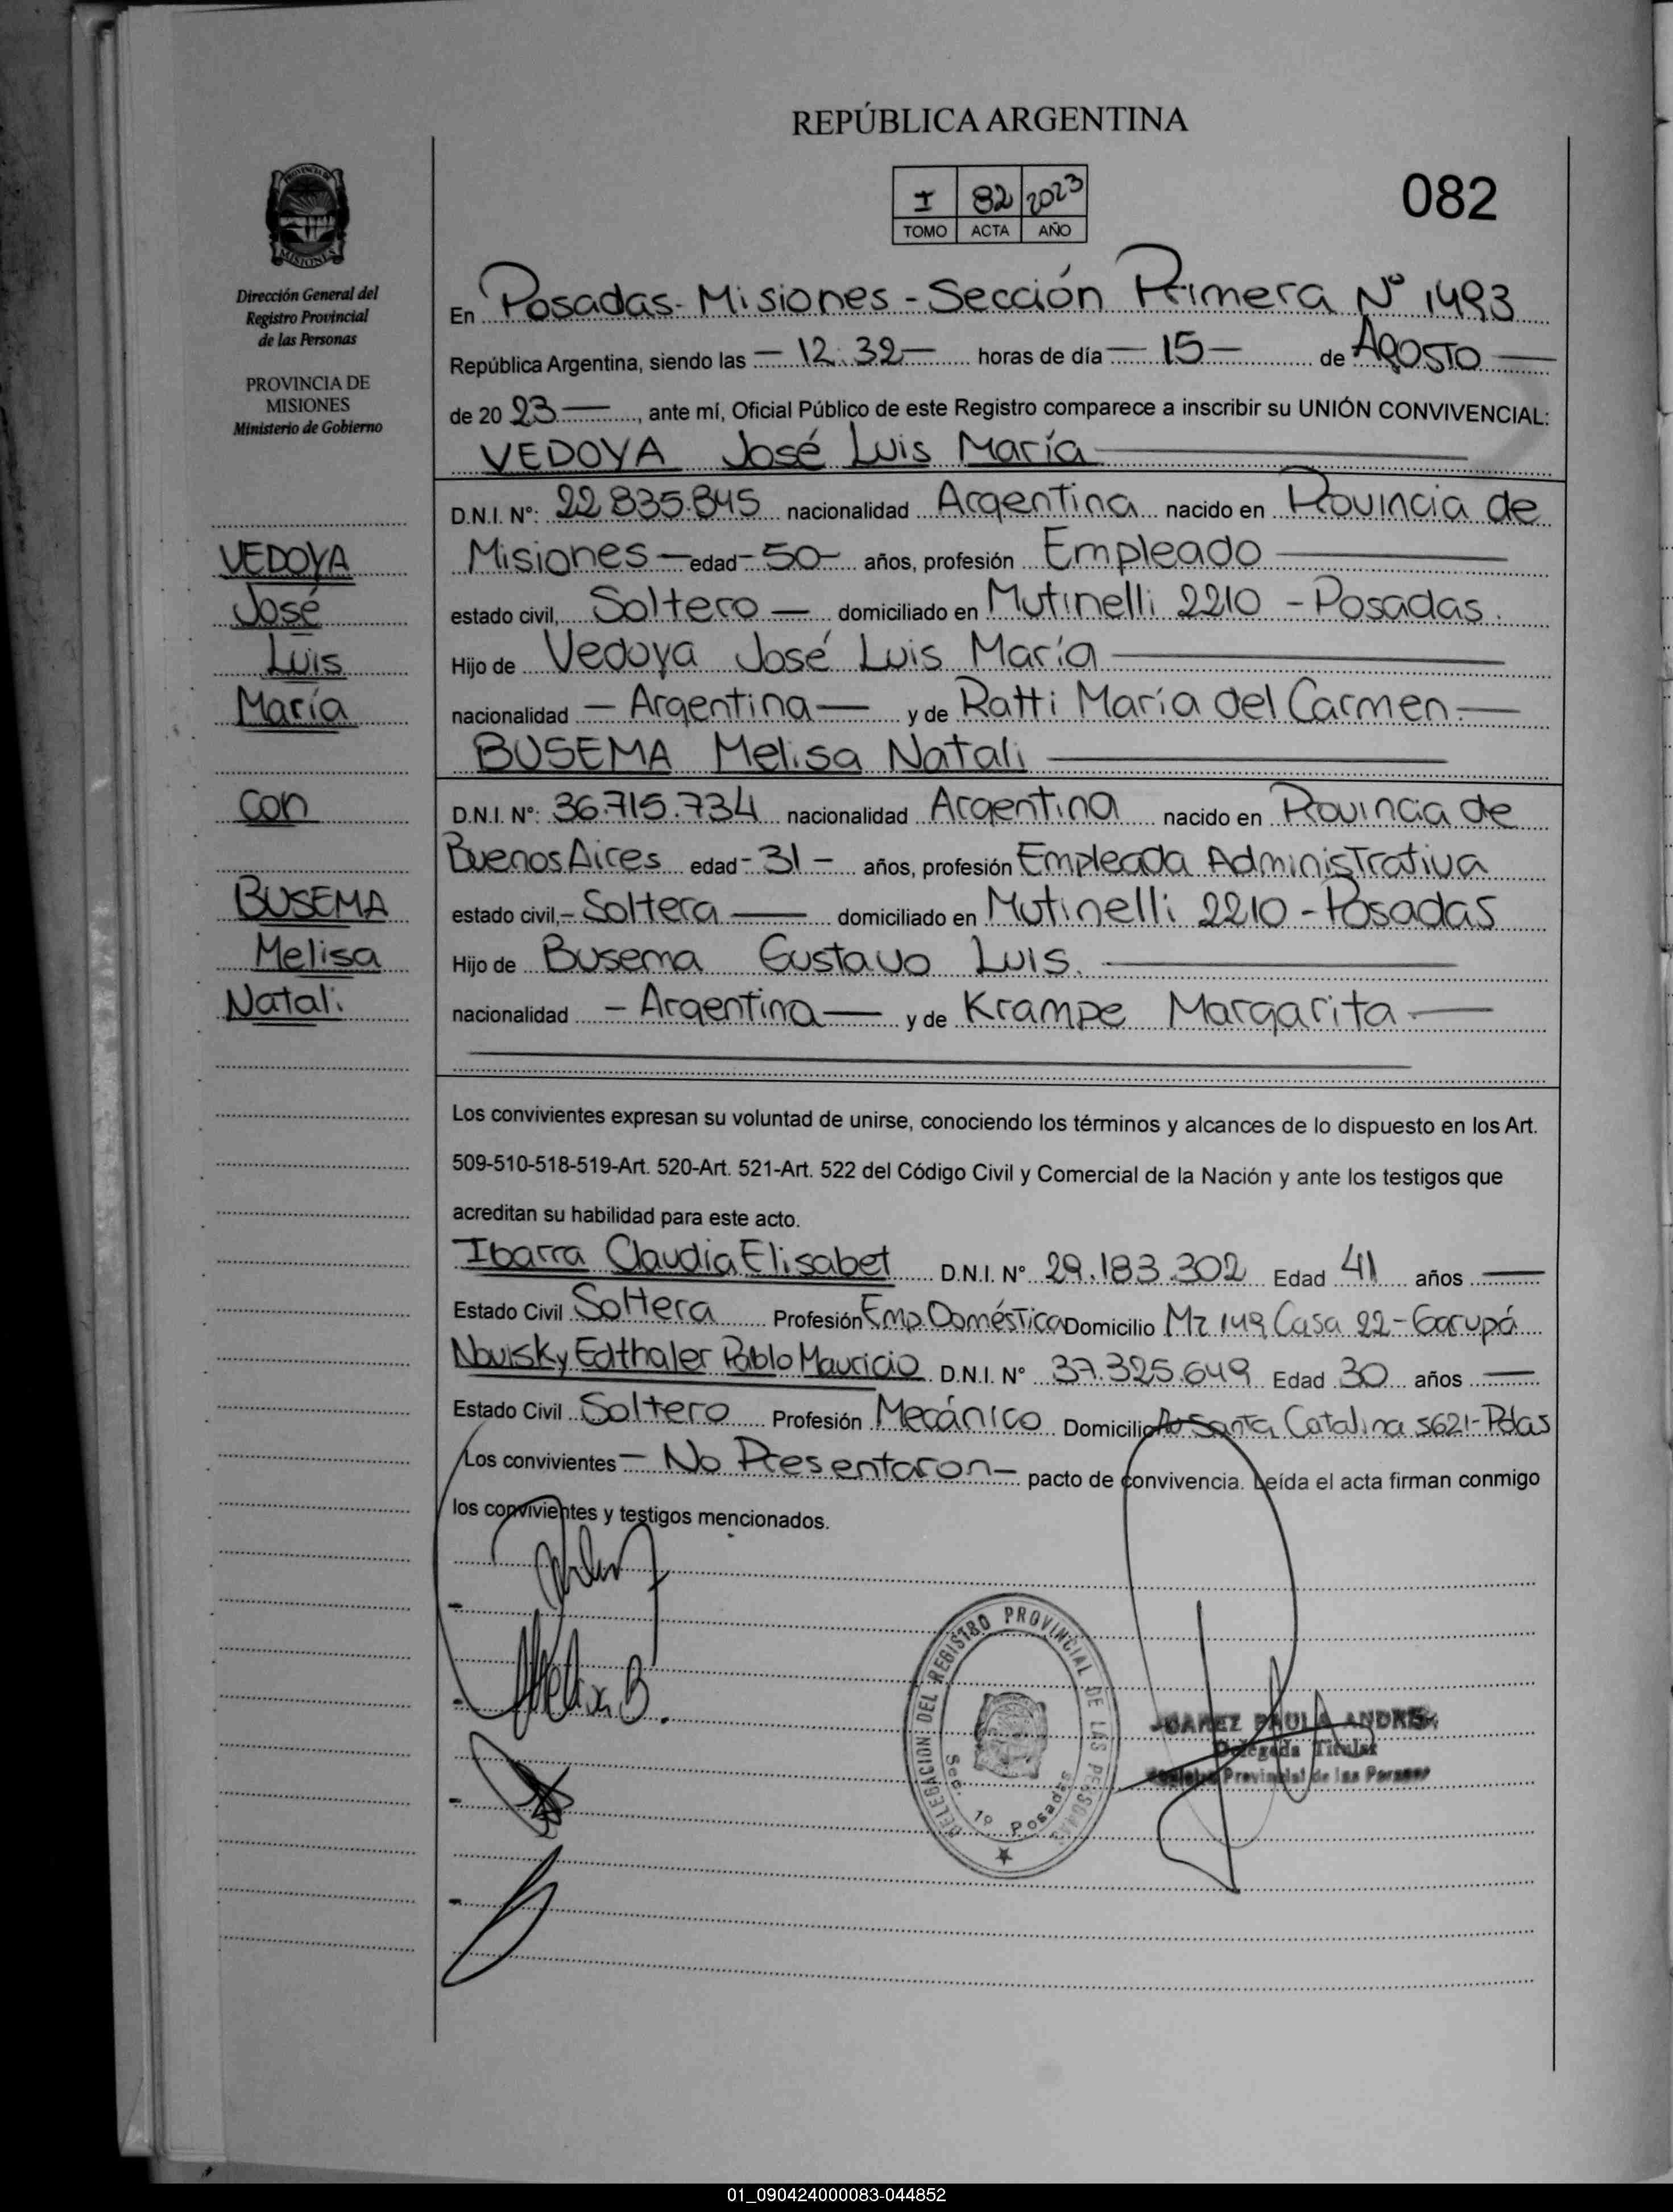 REPÚBLICA ARGENTINA
I 82 2023
TOMO ACTA AÑO
082
PROVINCIA DE
MISIONES
Dirección General del
Registro Provincial
de las Personas
PROVINCIA DE
MISIONES
Ministerio de Gobierno
VEDOYA
José
Luis
María
con
BUSEMA
Melisa
Natali
En Posadas - Misiones - Sección Primera Nº 1493
República Argentina, siendo las - 12:32 - horas de día - 15 - de Agosto -
de 2023 -, ante mí, Oficial Público de este Registro comparece a inscribir su UNIÓN CONVIVENCIAL:
VEDOYA José Luis María
D.N.I. Nº: 22.835.845 nacionalidad Argentina nacido en Provincia de
Misiones - edad - 50 - años, profesión Empleado
estado civil, Soltero - domiciliado en Mutinelli 2210 - Posadas.
Hijo de Vedoya José Luis María
nacionalidad - Argentina - y de Ratti María del Carmen -
BUSEMA Melisa Natali
D.N.I. Nº: 36.715.734 nacionalidad Argentina nacido en Provincia de
Buenos Aires edad - 31 - años, profesión Empleada Administrativa
estado civil, - Soltera - domiciliado en Mutinelli 2210 - Posadas
Hijo de Busema Gustavo Luis.
nacionalidad - Argentina - y de Krampe Margarita -
Los convivientes expresan su voluntad de unirse, conociendo los términos y alcances de lo dispuesto en los Art.
509-510-518-519-Art. 520-Art. 521-Art. 522 del Código Civil y Comercial de la Nación y ante los testigos que
acreditan su habilidad para este acto.
Ibarra Claudia Elisabet D.N.I. Nº 29.183.302 Edad 41 años -
Estado Civil Soltera Profesión Emp. Doméstica Domicilio Mz 149 Casa 22 - Garupá
Novisky Edthaler Pablo Mauricio D.N.I. Nº 37.325.649 Edad 30 años -
Estado Civil Soltero Profesión Mecánico Domicilio Av Santa Catalina 5621 - Pdas
Los convivientes - No Presentaron - pacto de convivencia. Leída el acta firman conmigo
los convivientes y testigos mencionados.
Melisa B.
DELEGACION DEL REGISTRO PROVINCIAL DE LAS PERSONAS
Sec. 1º Posadas
PAULA ANDREA
Delegada Titular
Provincial de las Personas
01_090424000083-044852